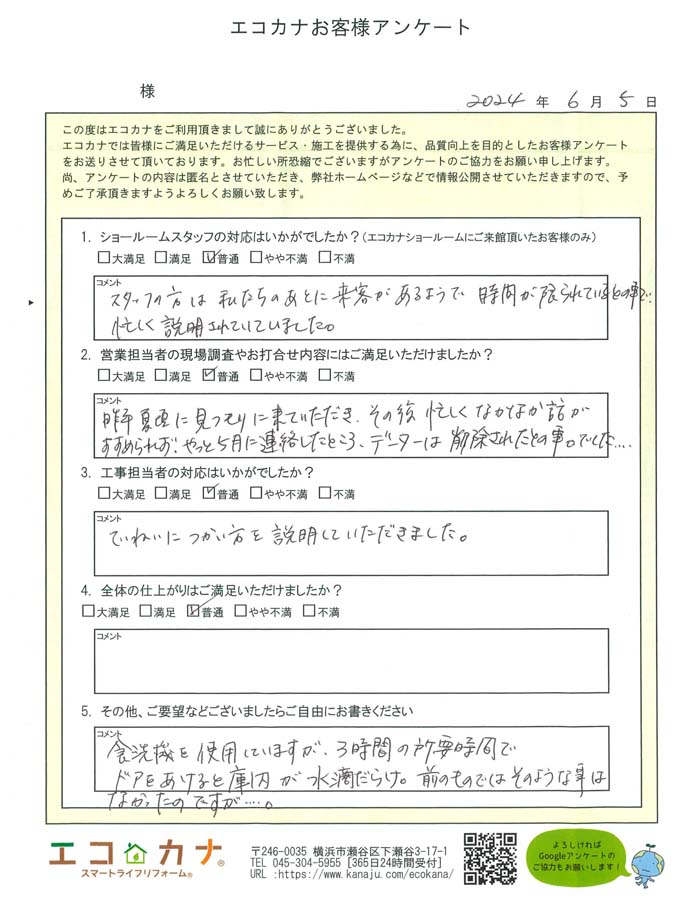 エコカナお客様アンケート
様
2024 年 6 月 5 日
この度はエコカナをご利用頂きまして誠にありがとうございました。
エコカナでは皆様にご満足いただけるサービス・施工を提供する為に、品質向上を目的としたお客様アンケート
をお送りさせて頂いております。お忙しい所恐縮でございますがアンケートのご協力をお願い申し上げます。
尚、アンケートの内容は匿名とさせていただき、弊社ホームページなどで情報公開させていただきますので、予
めご了承頂きますようよろしくお願い致します。
1. ショールームスタッフの対応はいかがでしたか？(エコカナショールームにご来館頂いたお客様のみ)
□大満足 □満足 ☑普通 □やや不満 □不満
コメント
スタッフの方は私たちのあとに来客があるようで 時間が限られているとの事で
忙しく説明されていていました。
2. 営業担当者の現場調査やお打合せ内容にはご満足いただけましたか？
□大満足 □満足 ☑普通 □やや不満 □不満
コメント
昨年夏頃に見つもりに来ていただき、その後忙しくなかなか話が
すすめられず、やっと5月に連絡したところ、データーは削除されたとの事。でした....
3. 工事担当者の対応はいかがでしたか？
□大満足 □満足 ☑普通 □やや不満 □不満
コメント
ていねいにつかい方を説明していただきました。
4. 全体の仕上がりはご満足いただけましたか？
□大満足 □満足 ☑普通 □やや不満 □不満
コメント
5. その他、ご要望などございましたらご自由にお書きください
コメント
食洗機を使用していますが、3時間の所要時間で
ドアをあけると庫内が水滴だらけ。前のものではそのような事は
なかったのですが....。
エコカナ®
スマートライフリフォーム®
〒246-0035 横浜市瀬谷区下瀬谷3-17-1
TEL 045-304-5955 [365日24時間受付]
URL :https://www.kanaju.com/ecokana/
よろしければ
Googleアンケートの
ご協力もお願いします！